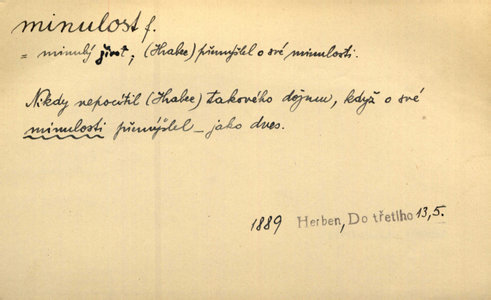 minulost f.
= minulý život; (Hrabec) přemýšlel o své minulosti.
Nikdy nepocítil (Hrabec) takového dojmu, když o své
minulosti přemýšlel – jako dnes.
1889 Herben, Do třetího 13,5.